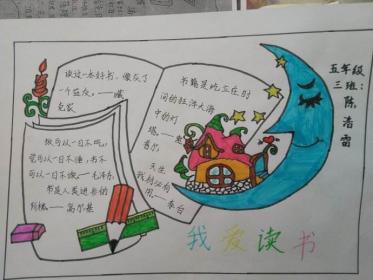 读过一本好书，像交了
一个益友。——臧
克家
书籍是屹立在时
间的汪洋大海
中的灯
塔。——惠
普尔
天生
我材必有
用。——李白
饭可以一日不吃，
觉可以一日不睡，书不
可以一日不读。——毛泽东
书是人类进步的
阶梯。——高尔基
五年级
三班：
陈浩雷
我爱读书